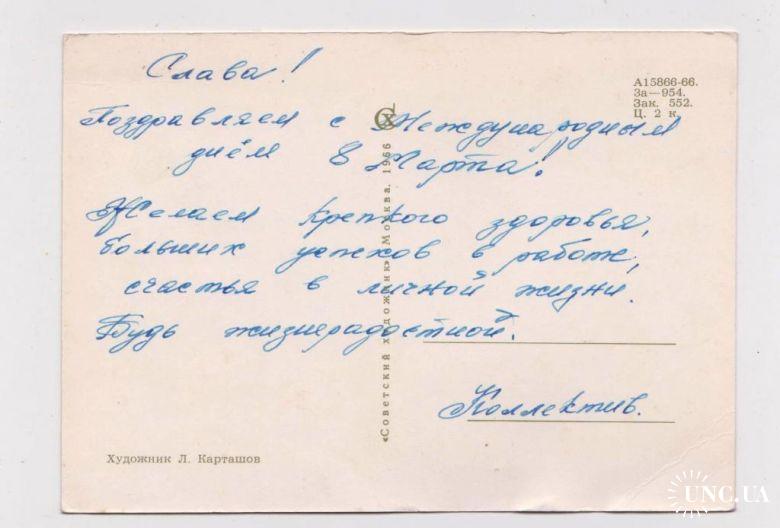 Слава!
Поздравляем с Международным
днём 8 Марта!
Желаем крепкого здоровья,
больших успехов в работе,
счастья в личной жизни.
Будь жизнерадостной.
Коллектив.
А15866-66.
За—954.
Зак. 552.
Ц. 2 к.
«Советский художник» Москва. 1966
СХ
Художник Л. Карташов
UNC.UA